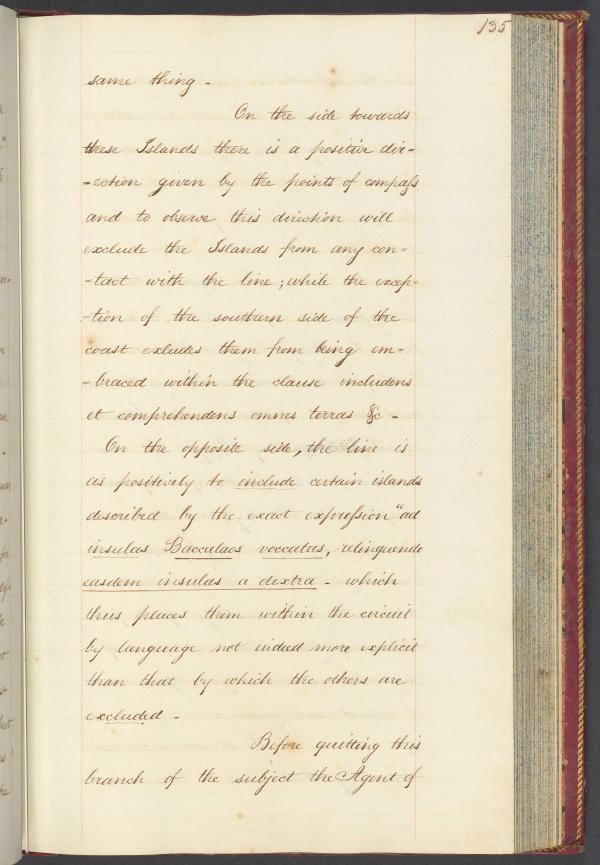 135
same thing -
On the side towards
these Islands there is a positive dir-
-ection given by the points of compass
and to observe this direction will
exclude the Islands from any con-
-tact with the line; while the excep-
-tion of the southern side of the
coast exludes them from being em-
-braced within the clause includens
et comprehendens omnes terras &c -
On the opposite side, the line is
as positively to include certain islands
described by the exact expression "ad
insulas Baccalaos voccatas, relinquendo
easdem insulas a dextra - which
thus places them within the circuit
by language not indeed more explicit
than that by which the others are
excluded -
Before quitting this
branch of the subject the Agent of